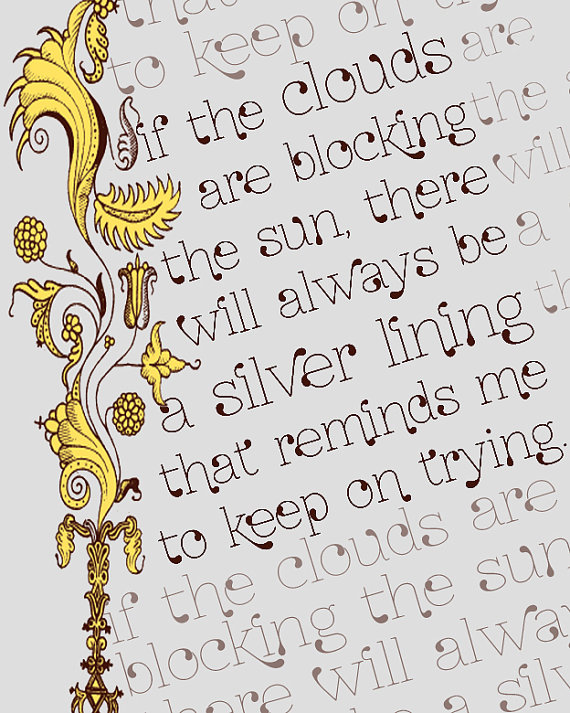 that
to keep on try
if the clouds are
are blocking the a
the sun, there will
will always be a s
a silver lining th
that reminds me
to keep on trying.
if the clouds are
blocking the sun
there will alway
be a silv